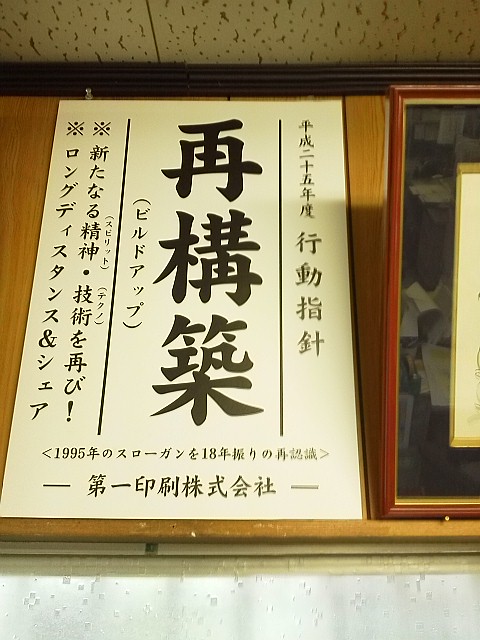 平成二十五年度 行動指針
再構築
(ビルドアップ)
※ 新たなる精神(スピリット)・技術(テクノ)を再び!
※ ロングディスタンス&シェア
<1995年のスローガンを18年振りの再認識>
― 第一印刷株式会社 ―